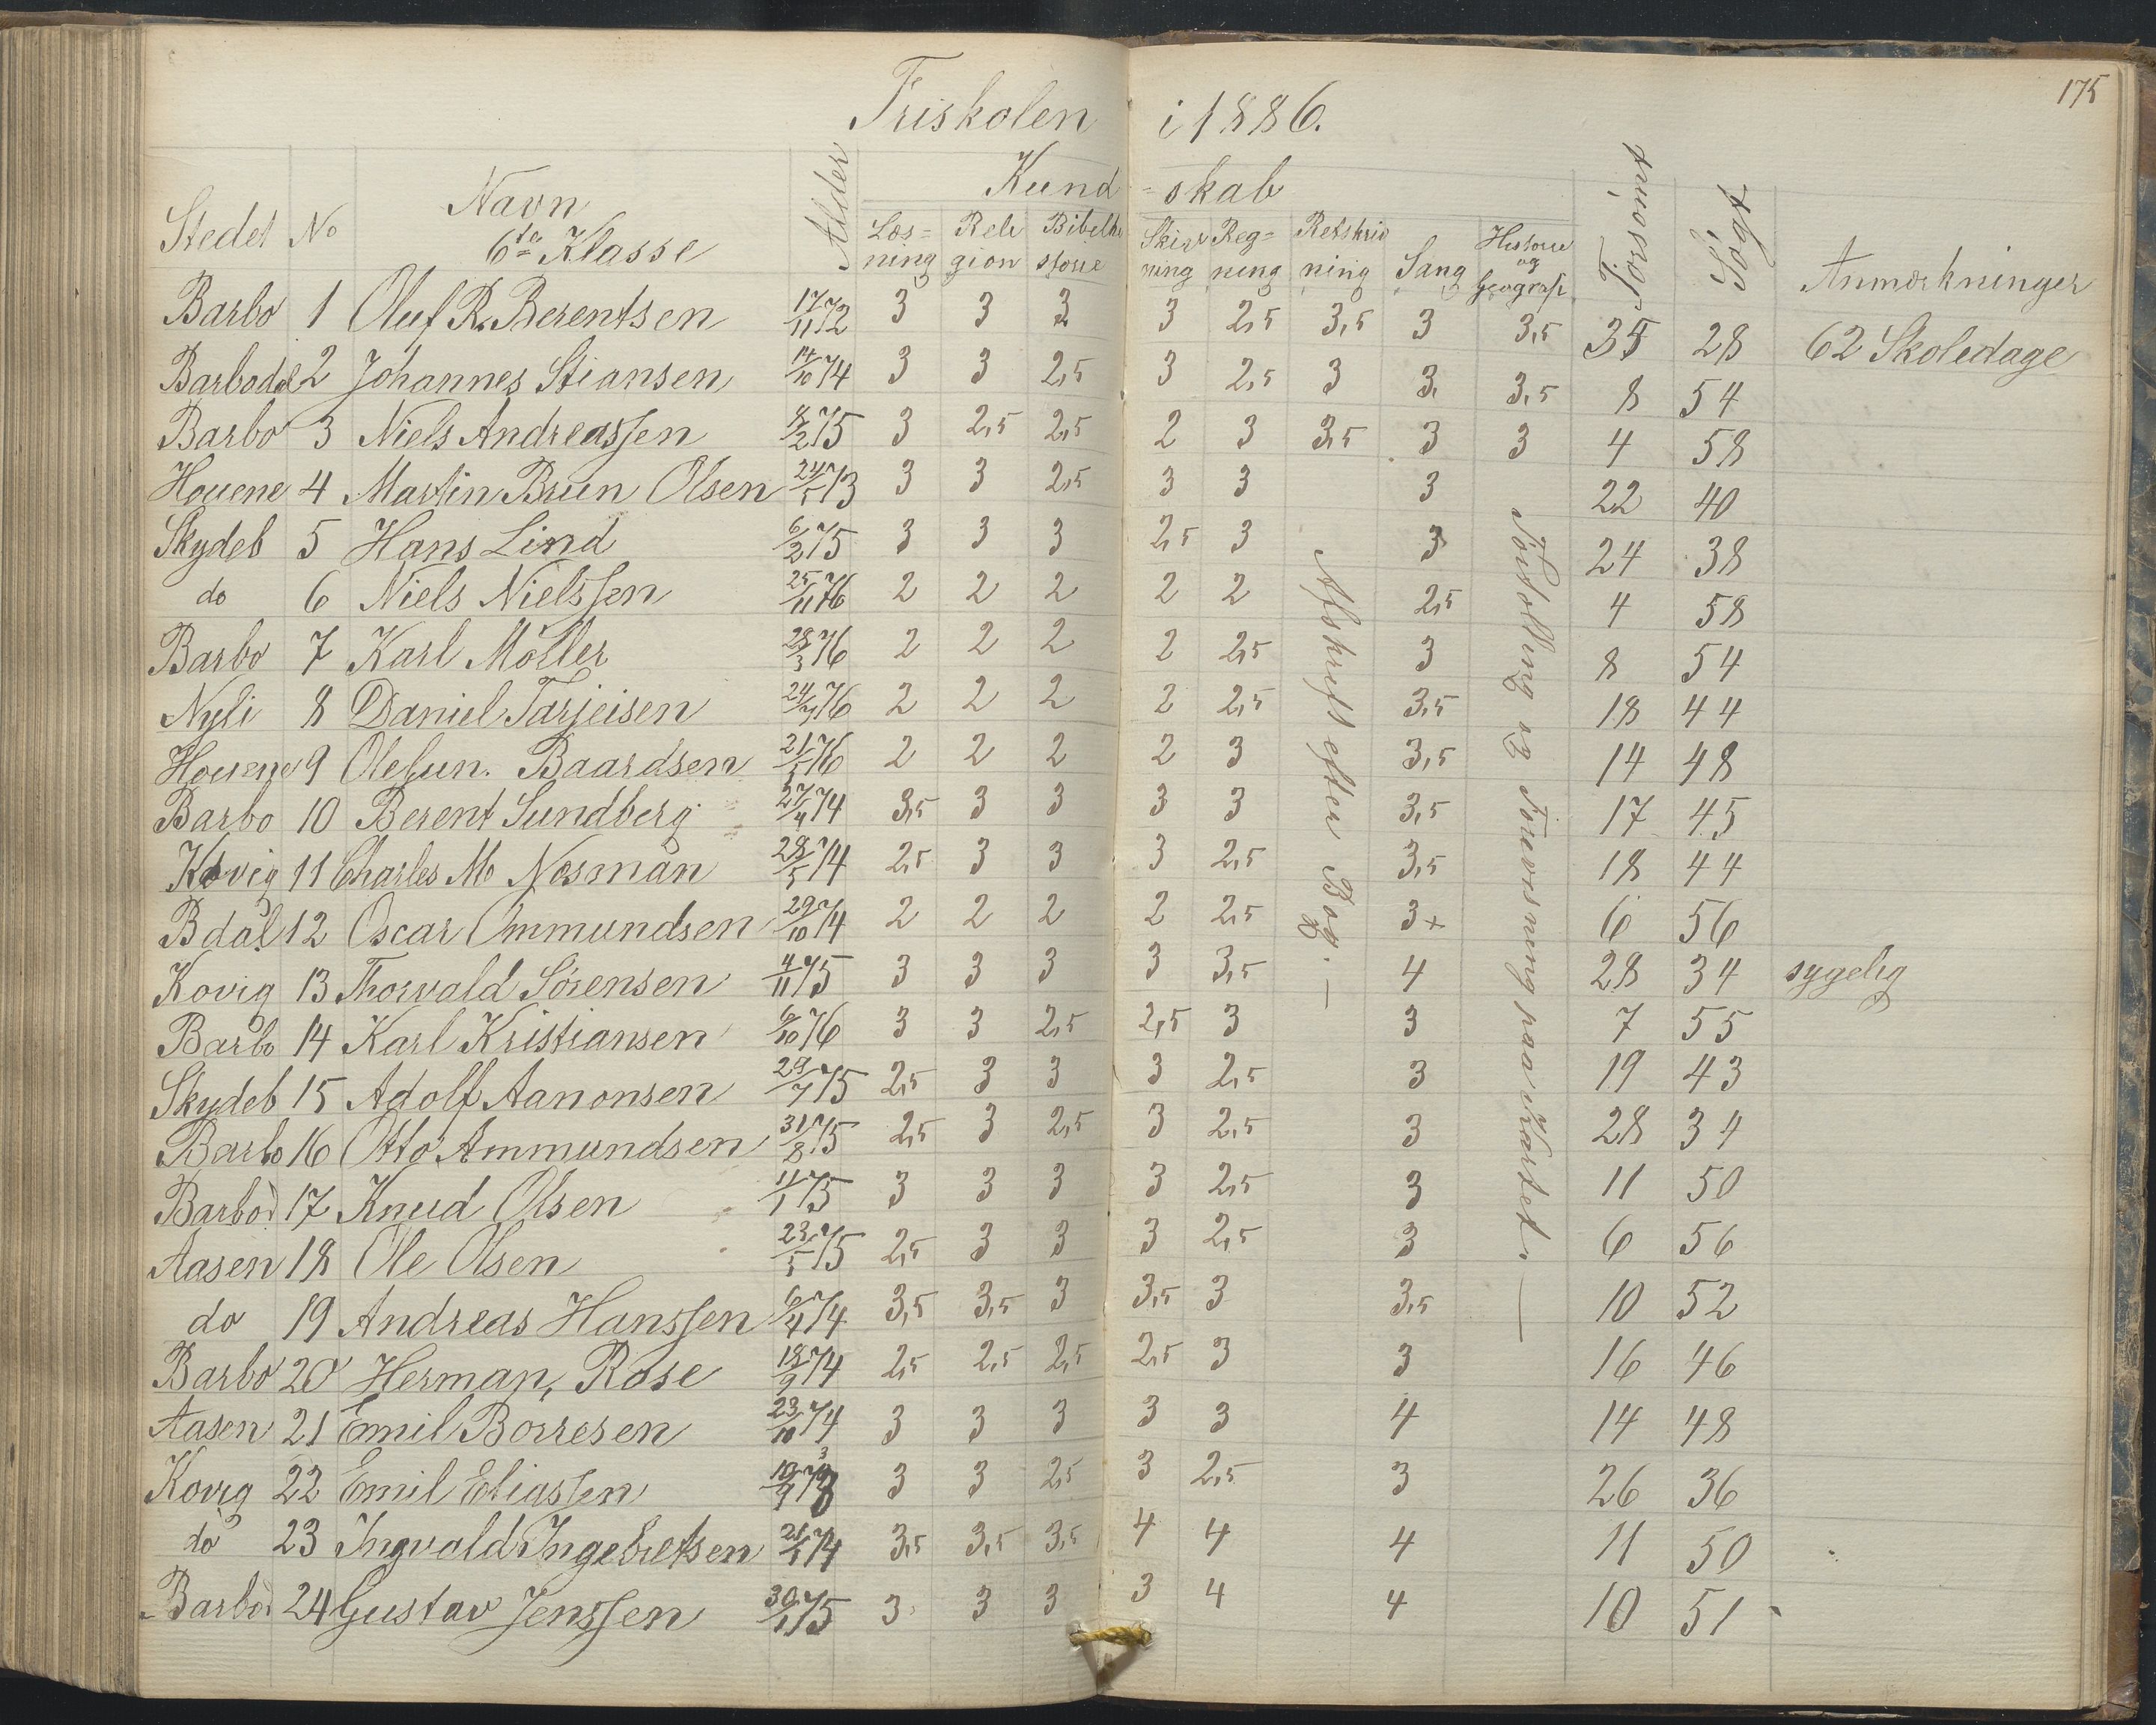 175
Friskolen i 1886.
Kund=skab
Stedet No Navn Alder Læs=ning Reli gion Bibelhi storie Skriv ning Reg=ning Retskriv ning Sang Historie og Geografi Forsømt Søgt Anmærkninger
6te Klasse
Barbo 1 Oluf R. Berentsen 17/11 72 3 3 3 3 2,5 3,5 3 3,5 35 28 62 Skoledage
Barbodal 2 Johannes Stiansen 14/10 74 3 3 2,5 3 2,5 3 3. 3,5 8 54
Barbo 3 Niels Andreassen 8/2 75 3 2,5 2,5 2 3 3,5 3 3 4 58
Houene 4 Martin Brun Olsen 24/5 73 3 3 2,5 3 3 3 22 40
Skydeb 5 Hans Lind 6/2 75 3 3 3 2,5 3 3 24 38
do 6 Niels Nielssen 25/11 76 2 2 2 2 2 2,5 4 58
Barbo 7 Karl Möller 28/3 76 2 2 2 2 2,5 3 8 54
Nyli 8 Daniel Tarjeisen 24/7 76 2 2 2 2 2,5 3,5 18 44
Houene 9 Ole Gun. Baardsen 21/5 76 2 2 2 2 3 3,5 14 48
Barbo 10 Berent Sundberg 27/4 74 3,5 3 3 3 3 3,5 17 45
Kovig 11 Charles M. Nesman 28/5 74 2,5 3 3 3 2,5 3,5 18 44
Bdal 12 Oscar Ommundsen 29/10 74 2 2 2 2 2,5 3+ 6 56
Kovig 13 Thorvald Sörensen 4/11 75 3 3 3 3 3,5 4 28 34 sygelig
Barbo 14 Karl Kristiansen 6/10 76 3 3 2,5 2,5 3 3 7 55
Skydeb 15 Adolf Aanonsen 29/7 75 2,5 3 3 3 2,5 3 19 43
Barbo 16 Otto Ammundsen 31/8 75 2,5 3 2,5 3 2,5 3 28 34
Barbod 17 Knud Olsen 11/1 75 3 3 3 3 2,5 3 11 50
Aasen 18 Ole Olsen 23/5 75 2,5 3 3 3 2,5 3 6 56
do 19 Andreas Hanssen 6/4 74 3,5 3,5 3 3,5 3 3,5 10 52
Barbo 20 Herman Rose 18/9 74 2,5 2,5 2,5 2,5 3 3 16 46
Aasen 21 Emil Börresen 23/10 74 3 3 3 3 3 4 14 48
Kovig 22 Emil Eliassen 19/9 73 3 3 2,5 3 2,5 3 26 36
do 23 Ingvald Ingebretsen 21/5 74 3,5 3,5 3,5 4 4 4 11 50
Barbod 24 Gustav Jenssen 30/1 75 3 3 3 3 4 4 10 51
Afskrift efter Bog. —
Fortælling og Forevisning paa Kartet. —